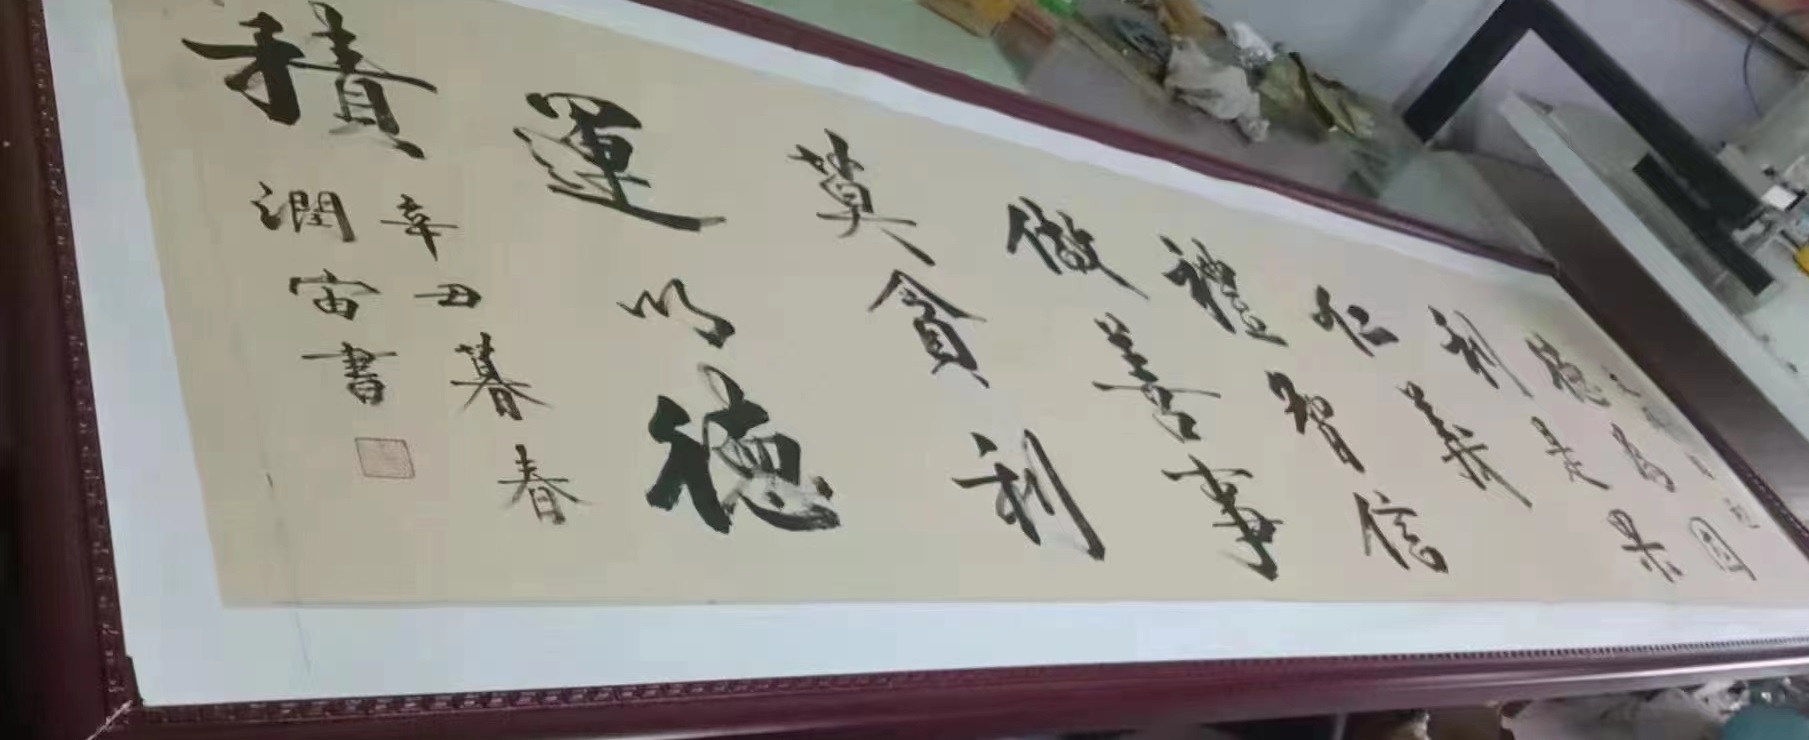 德為因
利是果
仁義
禮智信
做善事
莫貪利
運以德
積
辛丑暮春
潤宙書